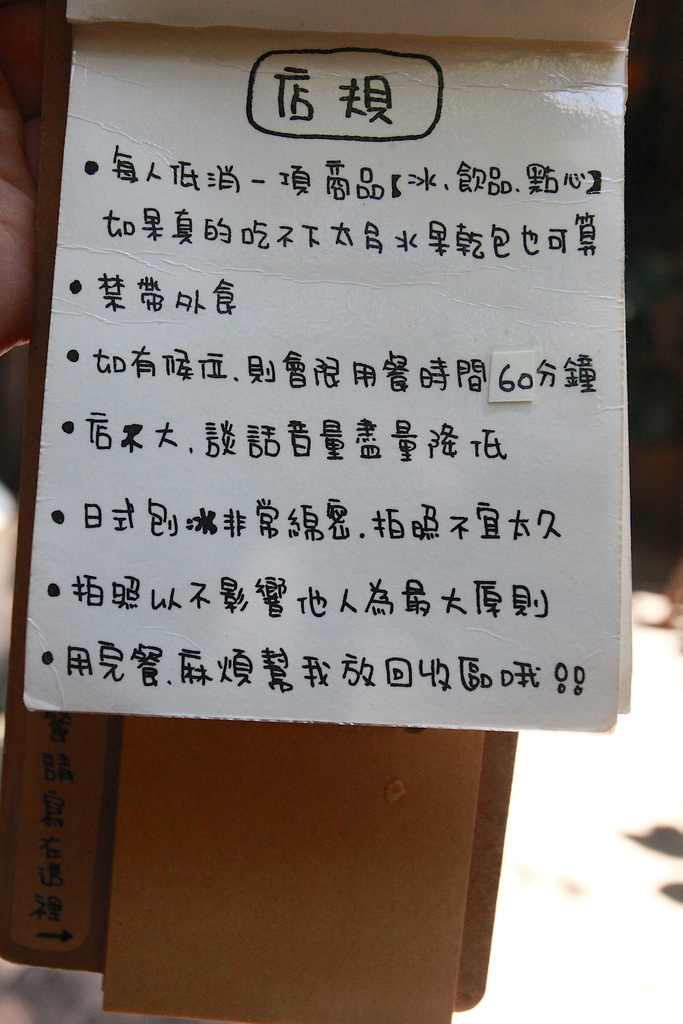 店規
• 每人低消一項商品【冰、飲品、點心】
如果真的吃不下太多水果乾包也可算
• 禁帶外食
• 如有候位、則會限用餐時間60分鐘
• 店不大、談話音量盡量降低
• 日式刨冰非常綿密、拍照不宜太久
• 拍照以不影響他人為最大原則
• 用完餐、麻煩幫我放回收區哦!!
餐請寫在這裡→